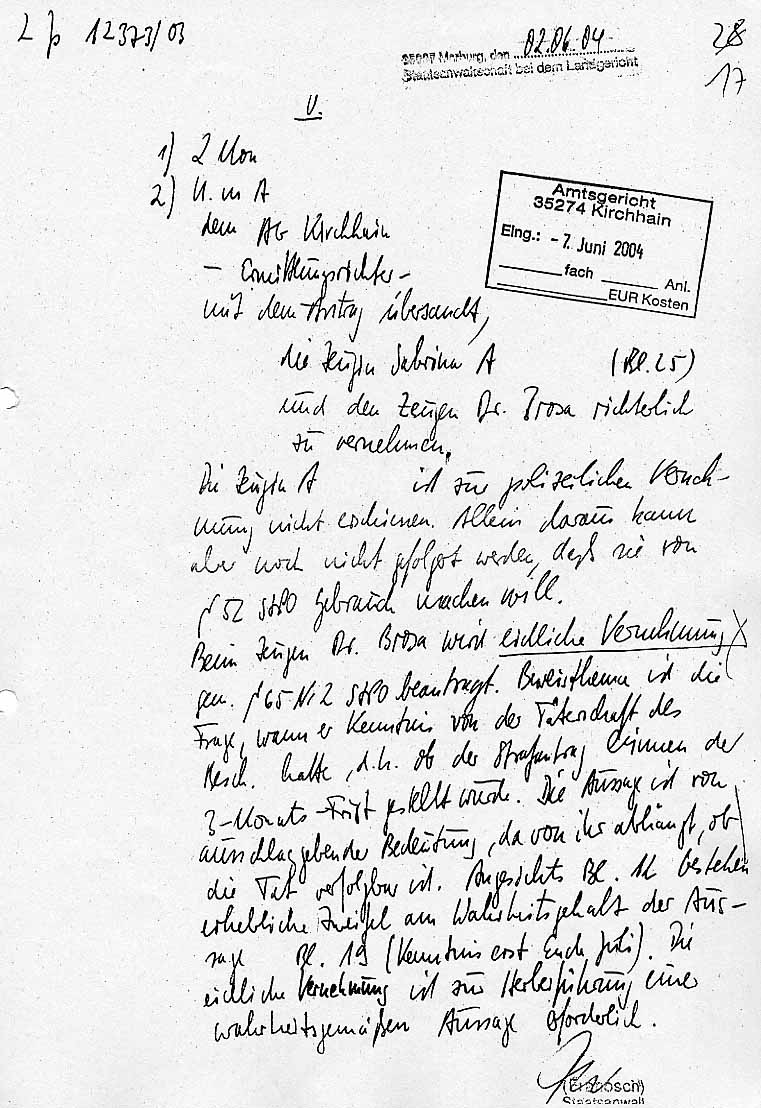 2 Js 12373/03
35037 Marburg, den 02.06.04
Staatsanwaltschaft bei dem Landgericht
28
17
V.
1) 2 Mon
2) U. m A
dem AG Kirchhain
– Ermittlungsrichter –
mit dem Antrag übersandt,
die Zeugin Sabrina A (Bl. 25)
und den Zeugen Dr. Brosa richterlich
zu vernehmen.
Amtsgericht
35274 Kirchhain
Eing.: - 7. Juni 2004
fach Anl.
EUR Kosten
Die Zeugin A ist zur polizeilichen Verneh-
mung nicht erschienen. Allein daraus kann
aber noch nicht gefolgert werden, daß sie von
§ 52 StPO Gebrauch machen will.
Beim Zeugen Dr. Brosa wird eidliche Vernehmung
gem. § 65 Nr. 2 StPO beantragt. Beweisthema ist die
Frage, wann er Kenntnis von der Täterschaft des
Besch. hatte, d.h. ob der Strafantrag binnen der
3-Monats-Frist gestellt wurde. Die Aussage ist von
ausschlaggebender Bedeutung, da von ihr abhängt, ob
die Tat verfolgbar ist. Angesichts Bl. 12 bestehen
erhebliche Zweifel am Wahrheitsgehalt der Aus-
sage Bl. 19 (Kenntnis erst Ende Juli). Die
eidliche Vernehmung ist zur Herbeiführung einer
wahrheitsgemäßen Aussage erforderlich.
Staatsanwalt